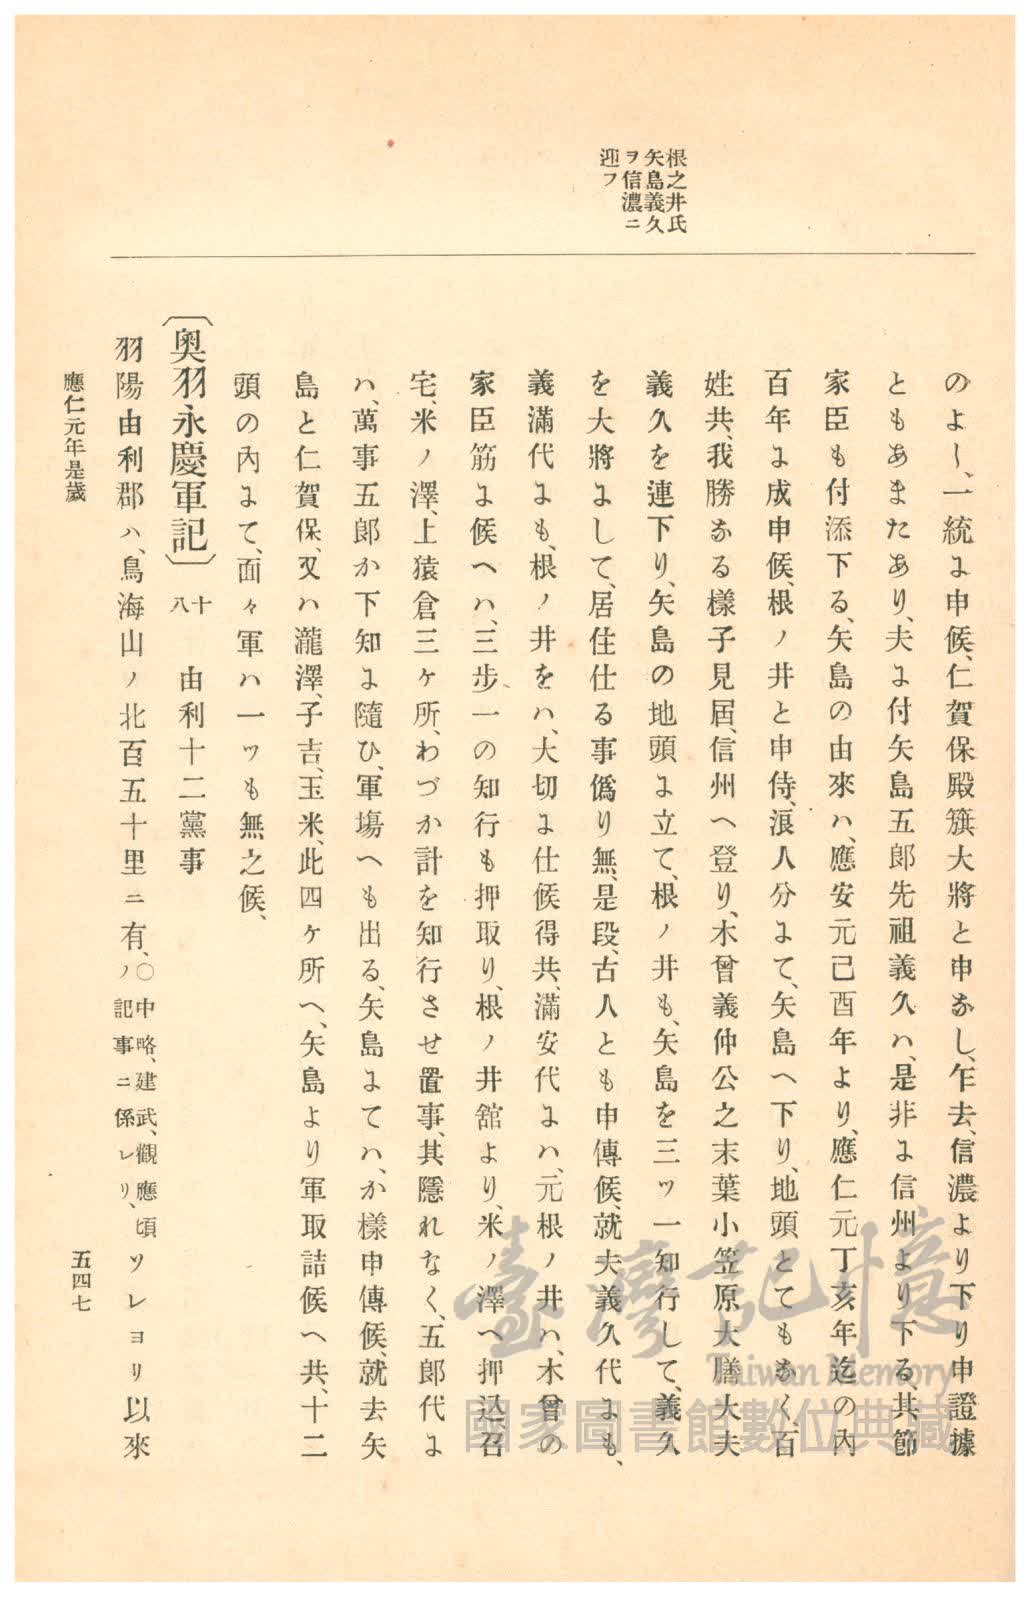 根之井氏
矢島義久
ヲ信濃ニ
迎フ
のよし、一統に申候、仁賀保殿簱大將と申なし、乍去、信濃より下り申證據
ともあまたあり、夫に付矢島五郎先祖義久ハ、是非に信州より下る、其節
家臣も付添下る、矢島の由來ハ、應安元己酉年より、應仁元丁亥年迄の內
百年に成申候、根ノ井と申侍、浪人分にて、矢島へ下り、地頭とてもなく、百
姓共、我勝なる樣子見屆、信州へ登り、木曾義仲公之末葉小笠原大膳大夫
義久を連下り、矢島の地頭に立て、根ノ井も、矢島を三ツ一知行して、義久
を大將にして、居住仕る事僞り無、是段、古人とも申傳候、就夫義久代にも、
義滿代にも、根ノ井をハ、大切に仕候得共、滿安代にハ、元根ノ井ハ、木曾の
家臣筋に候へハ、三步一の知行も押取り、根ノ井舘より、米ノ澤へ押込召
宅、米ノ澤、上猿倉三ヶ所、わづか計を知行させ置事、其隱れなく、五郎代に
ハ、萬事五郎か下知に隨ひ、軍塲へも出る、矢島にてハ、か樣申傳候、就去矢
島と仁賀保、又ハ瀧澤、子吉、玉米、此四ヶ所へ、矢島より軍取詰候へ共、十二
頭の內にて、面々軍ハ一ツも無之候、
〔奧羽永慶軍記〕十八 由利十二黨事
羽陽由利郡ハ、鳥海山ノ北百五十里ニ有、〇中略、建武、觀應頃ノ記事ニ係レリ、ソレヨリ以來
應仁元年是歲
五四七
臺灣記憶
Taiwan Memory
國家圖書館數位典藏